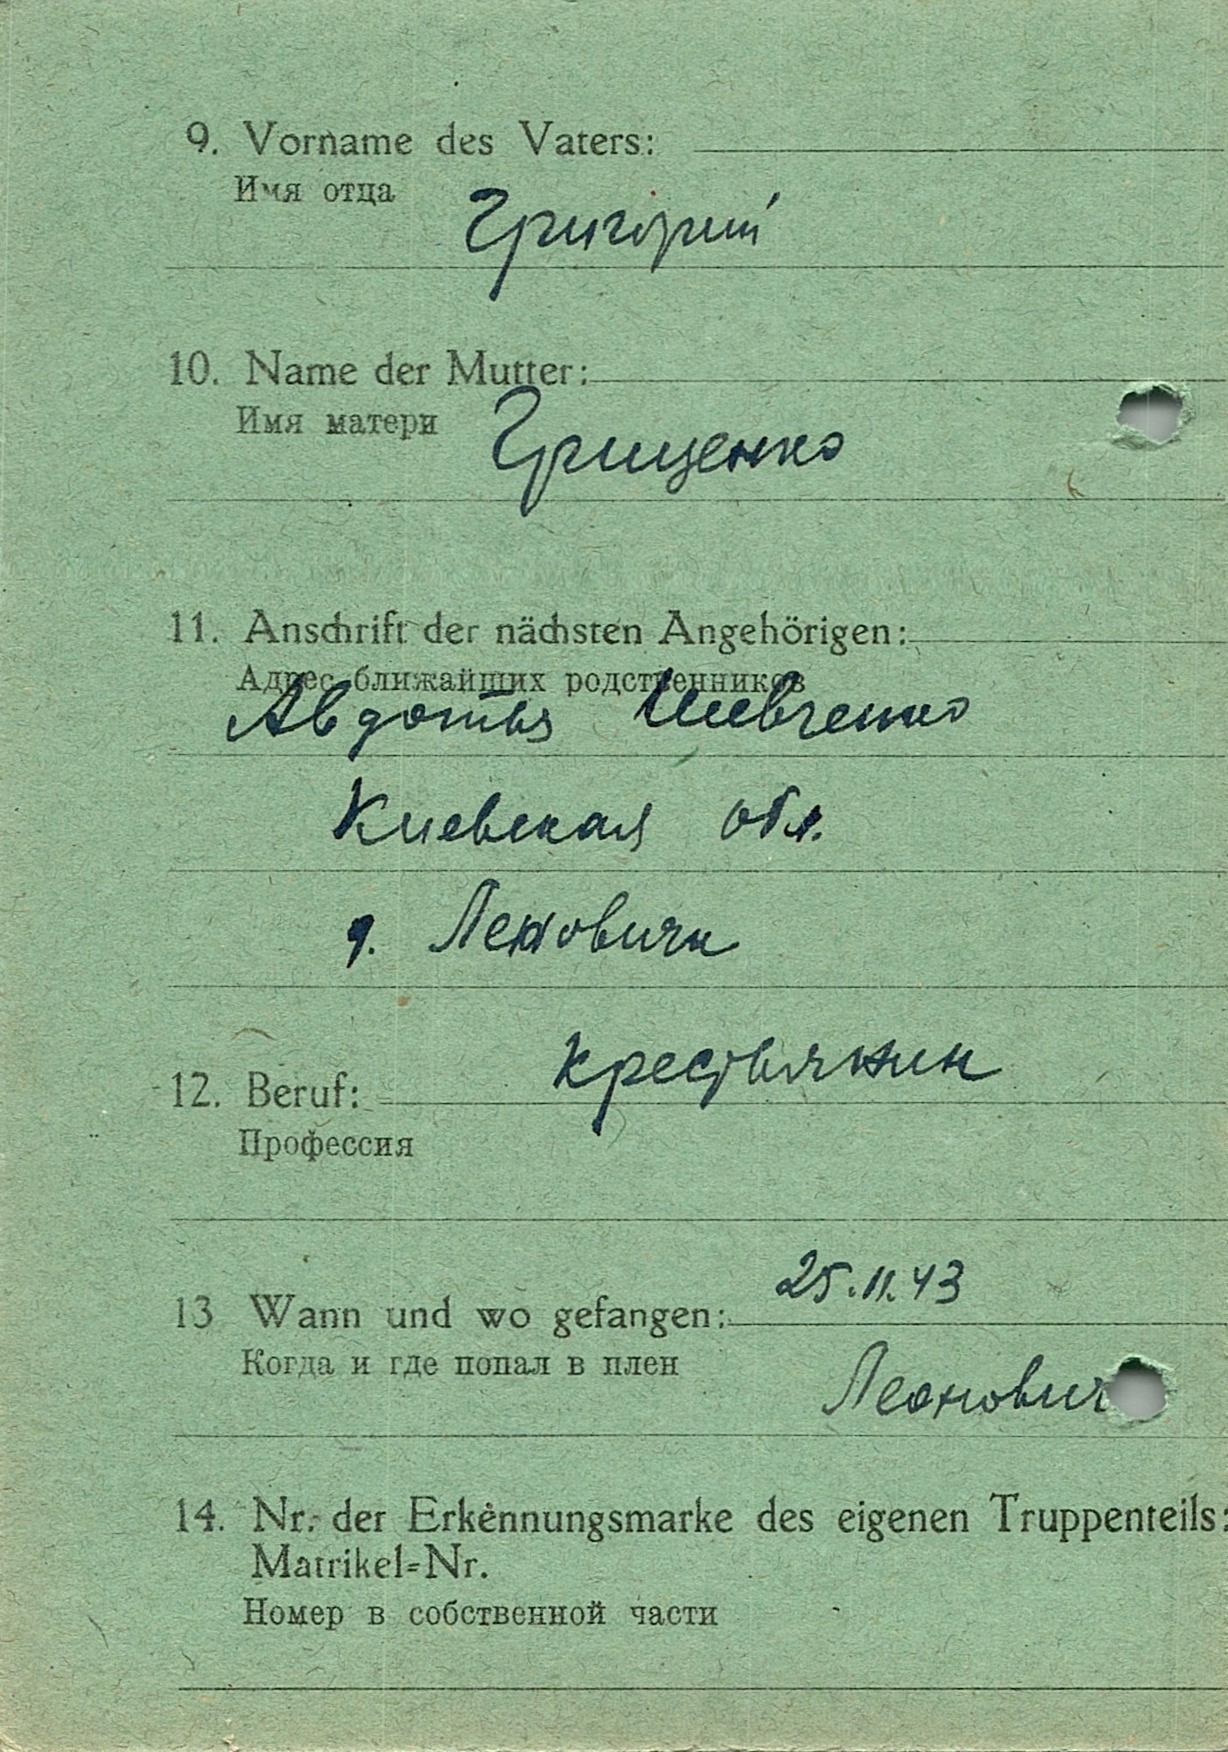 9. Vorname des Vaters:
Имя отца
Григорий
10. Name der Mutter:
Имя матери
Грищенко
11. Anschrift der nächsten Angehörigen:
Адрес ближайших родственников
Авдотья Шевченко
Киевская обл.
д. Леновичи
12. Beruf: крестьянин
Профессия
13 Wann und wo gefangen: 25.11.43
Когда и где попал в плен
14. Nr. der Erkennungsmarke des eigenen Truppenteils:
Matrikel=Nr.
Номер в собственной части